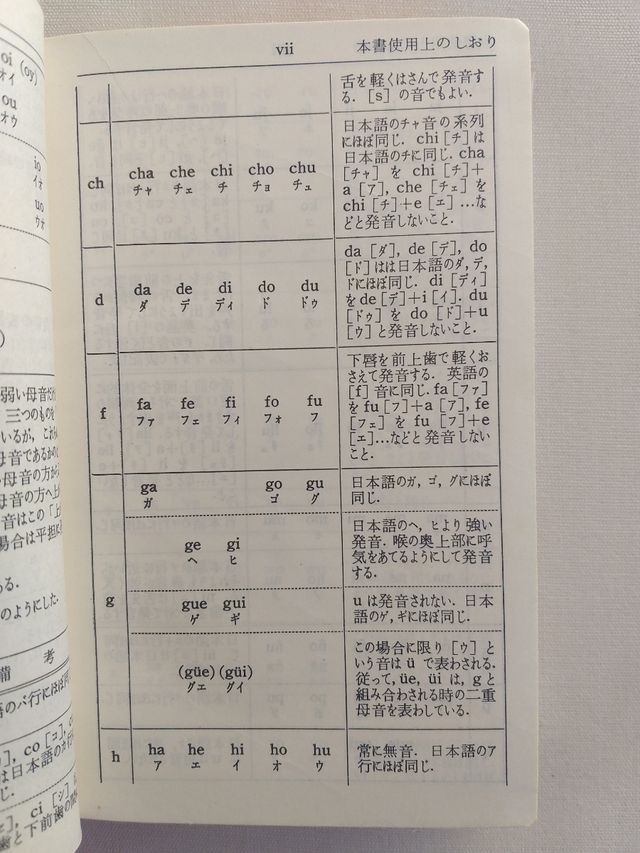 oi (oy)
オイ
ou
オウ
io
イオ
uo
ウオ
弱い母音
三つのものを
いるが,
母音であるが
母音の方から
母音の方へ上
音はこの「上
場合は平担に
ある.
のようにした.
備 考
語のバ行にほぼ同
co [コ],
は日本語のカ行
じ.
ci [シ]
歯と下前歯の間
vii 本書使用上のしおり
舌を軽くはさんで発音す
る. [s] の音でもよい.
ch
cha che chi cho chu
チャ チェ チ チョ チュ
日本語のチャ音の系列
にほぼ同じ. chi [チ] は
日本語のチに同じ. cha
[チャ] を chi [チ]+
a [ア], che [チェ] を
chi [チ]+e [エ] …な
どと発音しないこと.
d
da de di do du
ダ デ ディ ド ドゥ
da [ダ], de [デ], do
[ド] はは日本語のダ, デ,
ドにほぼ同じ. di [ディ]
を de [デ]+i [イ]. du
[ドゥ] を do [ド]+u
[ウ] と発音しないこと.
f
fa fe fi fo fu
ファ フェ フィ フォ フ
下唇を前上歯で軽くお
さえて発音する. 英語の
[f] 音に同じ. fa [ファ]
を fu [フ]+a [ア], fe
[フェ] を fu [フ]+e
[エ]…などと発音しない
こと.
g
ga go gu
ガ ゴ グ
日本語のガ, ゴ, グにほぼ
同じ.
ge gi
ヘ ヒ
日本語のヘ, ヒより強い
発音. 喉の奥上部に呼
気をあてるようにして発音
する.
gue gui
ゲ ギ
u は発音されない. 日本
語のゲ, ギにほぼ同じ.
(güe) (güi)
グエ グイ
この場合に限り [ウ] と
いう音は ü で表わされる.
従って, üe, üi は, g と
組み合わされる時の二重
母音を表わしている.
h
ha he hi ho hu
ア エ イ オ ウ
常に無音. 日本語のア
行にほぼ同じ.